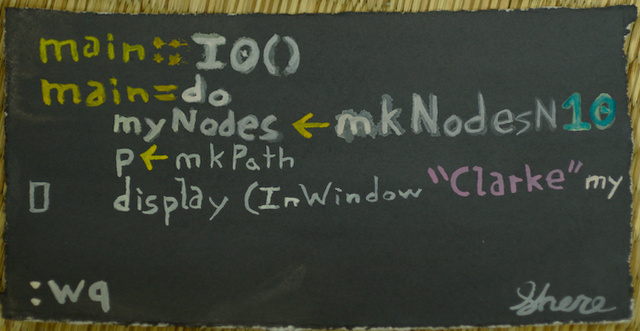 main::IO()
main=do
myNodes ← mkNodesN 10
p ← mkPath
▯ display (InWindow "Clarke" my
:wq